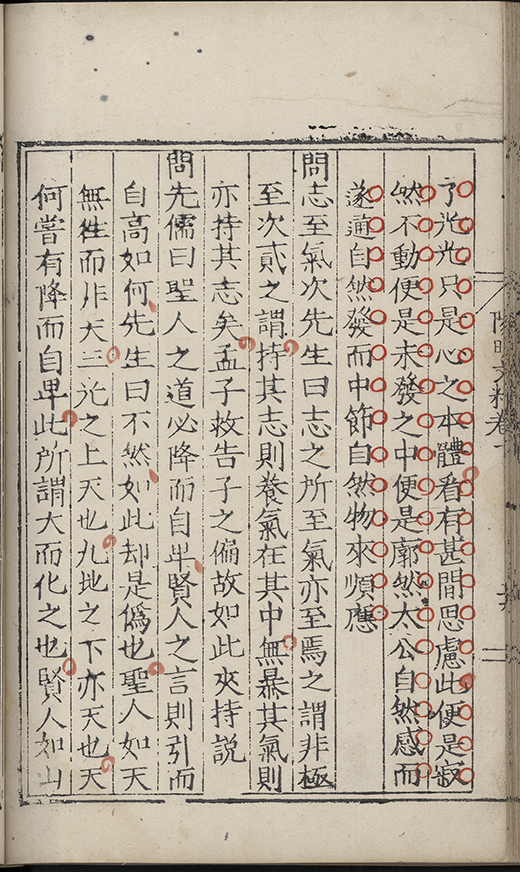 了光光只是心之本體看有甚間思慮此便是寂
然不動便是未發之中便是廓然大公自然感而
遂通自然發而中節自然物來順應
問志至氣次先生曰志之所至氣亦至焉之謂非極
至次貳之謂持其志則養氣在其中無暴其氣則
亦持其志矣孟子救告子之偏故如此夾持說
問先儒曰聖人之道必降而自卑賢人之言則引而
自高如何先生曰不然如此却是偽也聖人如天
無往而非天三光之上天也九地之下亦天也天
何嘗有降而自卑此所謂大而化之也賢人如山
陽明文粹卷一